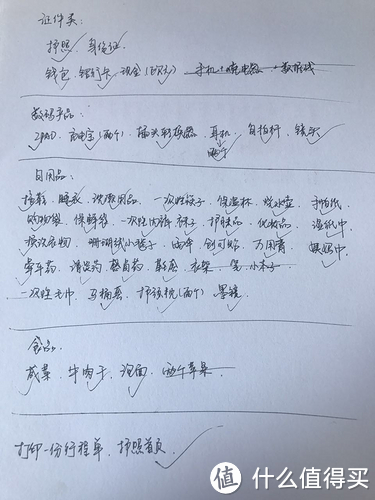 证件类:
护照、身份证、
钱包、银行卡、现金(欧元)、手机+充电器+数据线
数码产品:
IPAD、充电宝(两个)、插头转换器、耳机、自拍杆、镜头
两个
日用品:
拖鞋、睡衣、洗漱用品、一次性筷子、保温杯、烧水壶、手帕纸
购物袋、保鲜袋、一次性内裤 袜子、护肤品、化妆品、湿纸巾
换洗衣物、珊瑚绒小毯子、雨伞、创可贴、万用膏、
晕车药、消炎药、 衣架、笔 小本子
一次性毛巾、马桶垫、护颈枕(两个)、墨镜、
食品:
咸菜、牛肉干、泡面、两个苹果
打印一份行程单、护照首页、
值 什么值得买